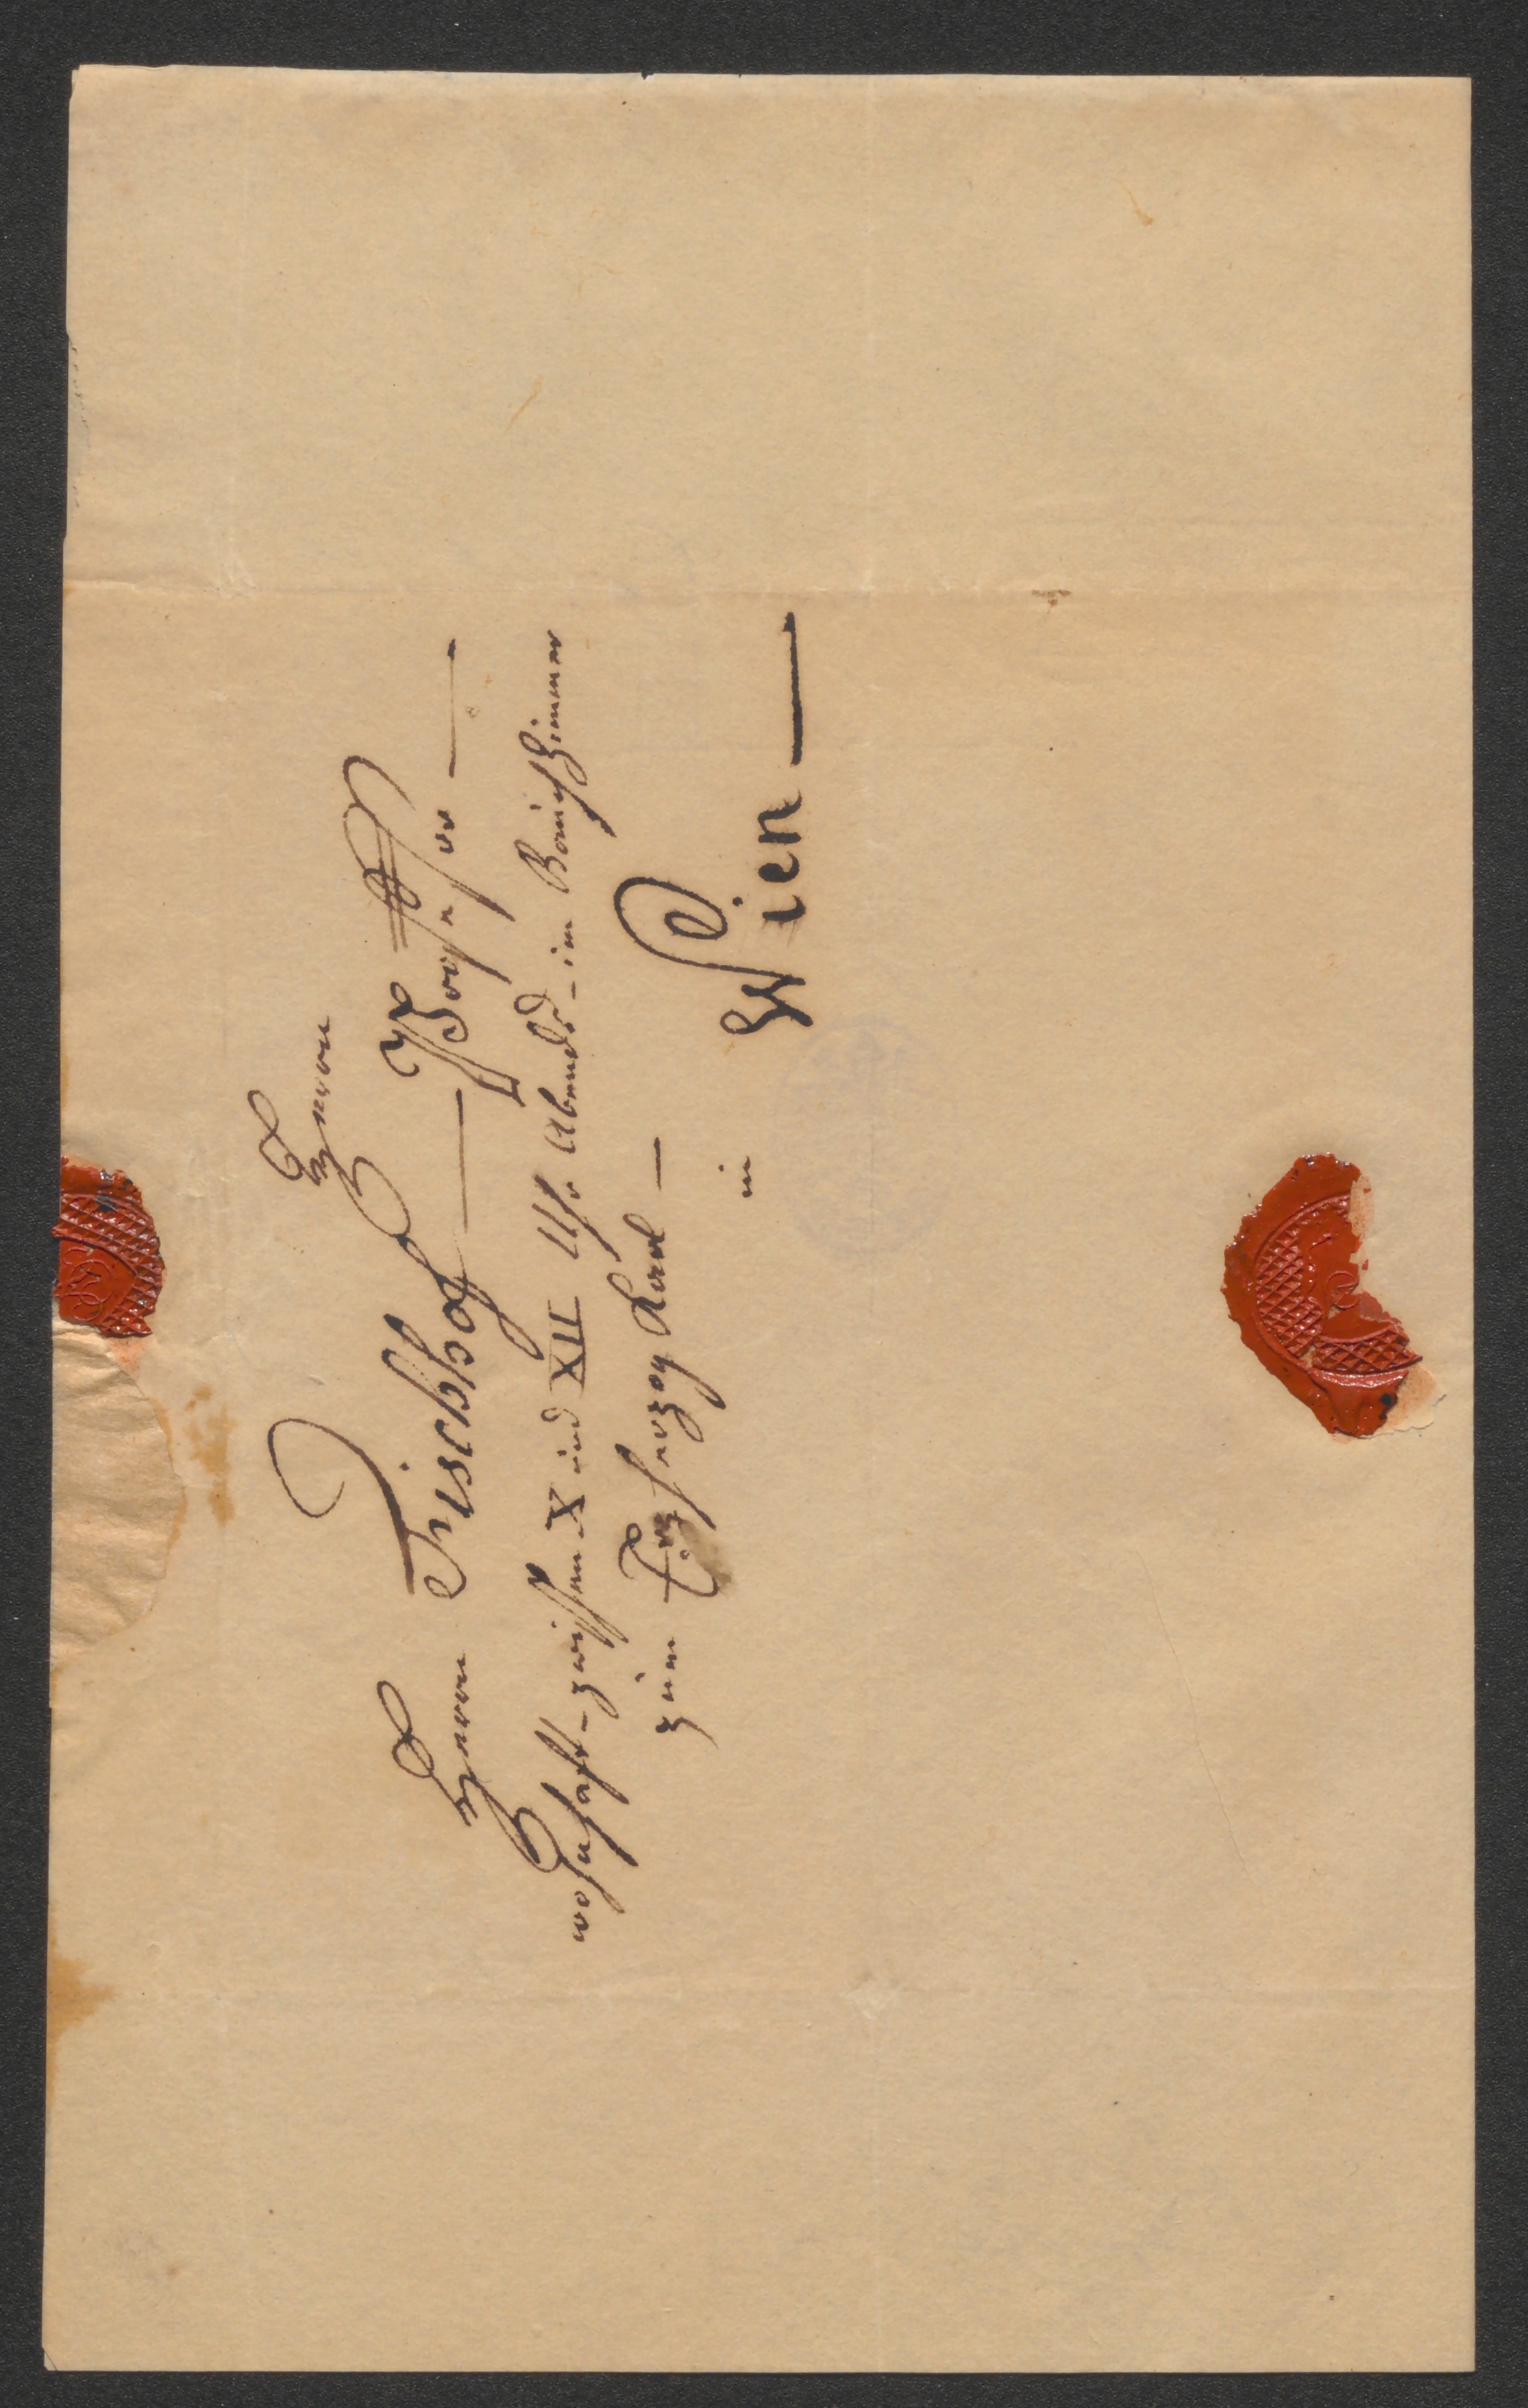 Herrn
Herrn Fischhof — Professor —
wohnhaft - zwischen X und XII Uhr Abends - im Rauchzimmer
zum Erzherzog Karl —
in Wien —